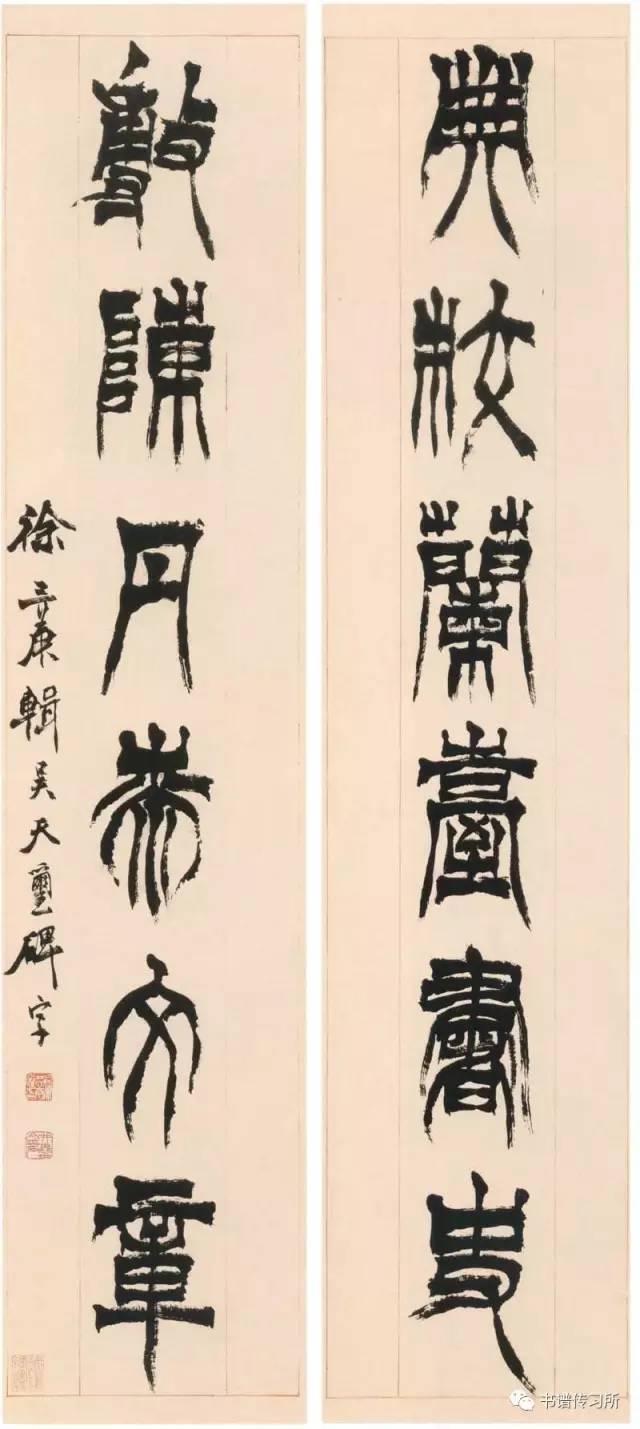 典校蘭臺書史
敷陳丹文章
徐三庚輯吳天璽碑字
书谱传习所